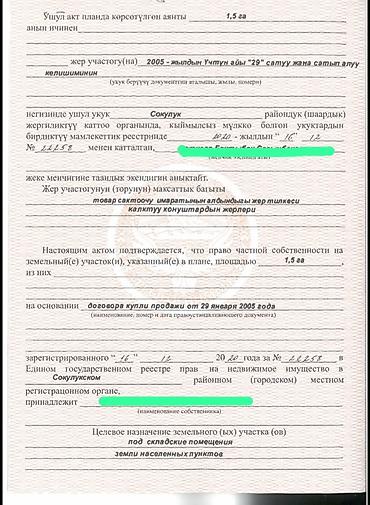 Ушул акт планда көрсөтүлгөн аянты 1,5 га
анын ичинен
жер участогу(на) 2005 - жылдын Үчтүн айы "29" сатуу жана сатып алуу
келишиминин
(укук берүүчү документтин аталышы, жылы, номери)
негизинде ушул укук Сокулук райондук (шаардык)
жергиликтүү каттоо органында, кыймылсыз мүлккө болгон укуктардын
бирдиктүү мамлекеттик реестринде 2020 - жылдын " 16 " 12
№ 22258 менен катталган,
жеке менчигине таандык экендигин аныктайт.
Жер участогунун (торунун) максаттык багыты
товар сактоочу имаратынын алдындагы жер тилкеси
калктуу конуштардын жерлери
Настоящим актом подтверждается, что право частной собственности на
земельный(е) участок(и), указанный(е) в плане, площадью 1,5 га,
из них
на основании договора купли продажи от 29 января 2005 года
(наименование, номер и дата правоустанавливающего документа)
зарегистрированного " 16 " 12 2020 года за № 22258 в
Едином государственном реестре прав на недвижимое имущество в
Сокулукском районном (городском) местном
регистрационном органе,
принадлежит
(наименование собственника)
Целевое назначение земельного (ых) участка (ов)
под складские помещения
земли населенных пунктов